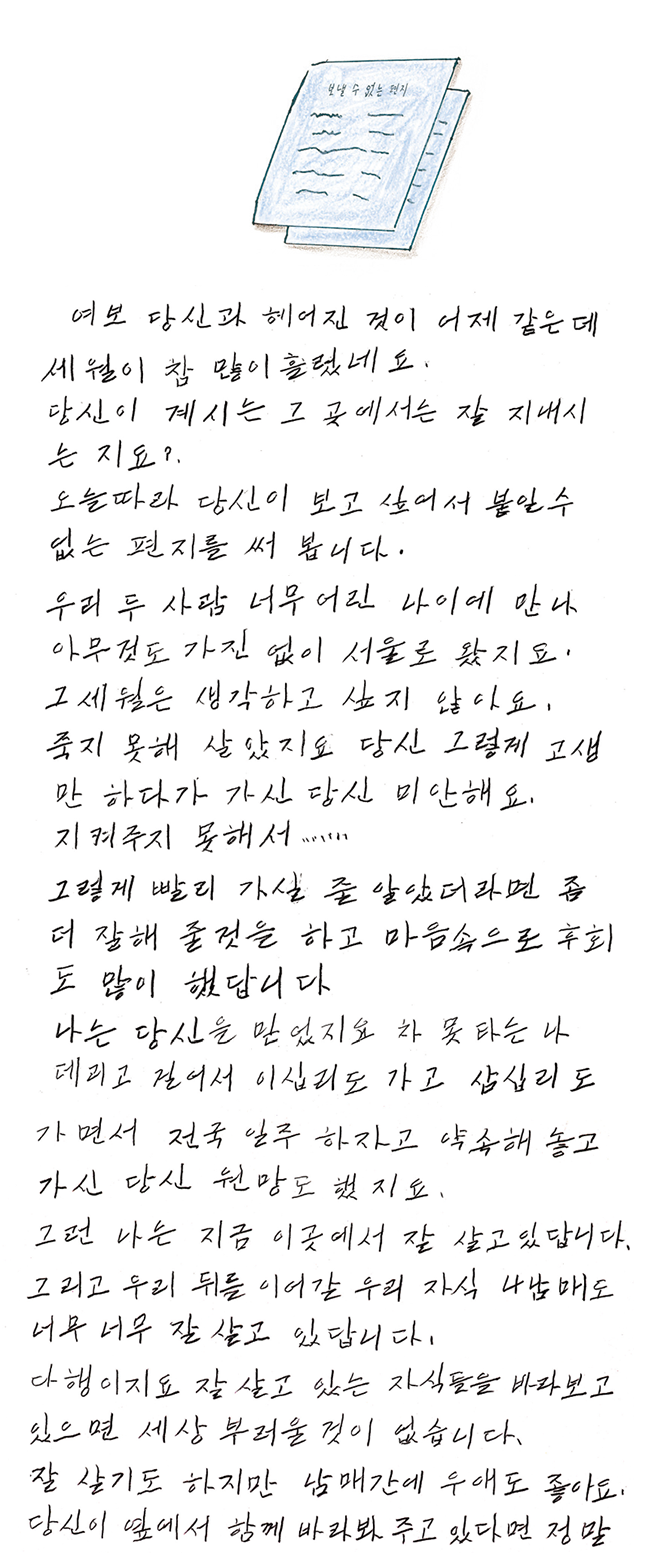 보낼 수 없는 편지
여보 당신과 헤어진 것이 어제 같은데
세월이 참 많이 흘렀네요.
당신이 계시는 그 곳에서는 잘 지내시
는 지요?.
오늘따라 당신이 보고 싶어서 붙일수
없는 편지를 써 봅니다.
우리 두 사람 너무 어린 나이에 만나
아무것도 가진 없이 서울로 왔지요.
그세월은 생각하고 싶지 않아요.
죽지 못해 살았지요 당신 그렇게 고생
만 하다가 가신 당신 미안해요.
지켜주지 못해서.......
그렇게 빨리 가실 줄 알았더라면 좀
더 잘해 줄것을 하고 마음속으로 후회
도 많이 했답니다
나는 당신을 믿었지요 차 못 타는 나
데리고 걸어서 이십리도 가고 삼십리도
가면서 전국 일주 하자고 약속해 놓고
가신 당신 원망도 했지요.
그런 나는 지금 이곳에서 잘 살고있답니다.
그리고 우리 뒤를 이어갈 우리 자식 사남매도
너무 너무 잘 살고 있답니다.
다행이지요 잘 살고 있는 자식들을 바라보고
있으면 세상 부러울것이 없습니다.
잘 살기도 하지만 남매간에 우애도 좋아요.
당신이 옆에서 함께 바라봐 주고있다면 정말